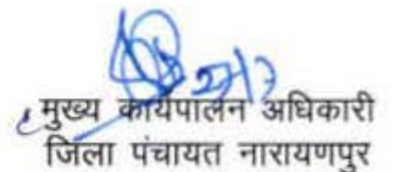 27/7
मुख्य कार्यपालन अधिकारी
जिला पंचायत नारायणपुर